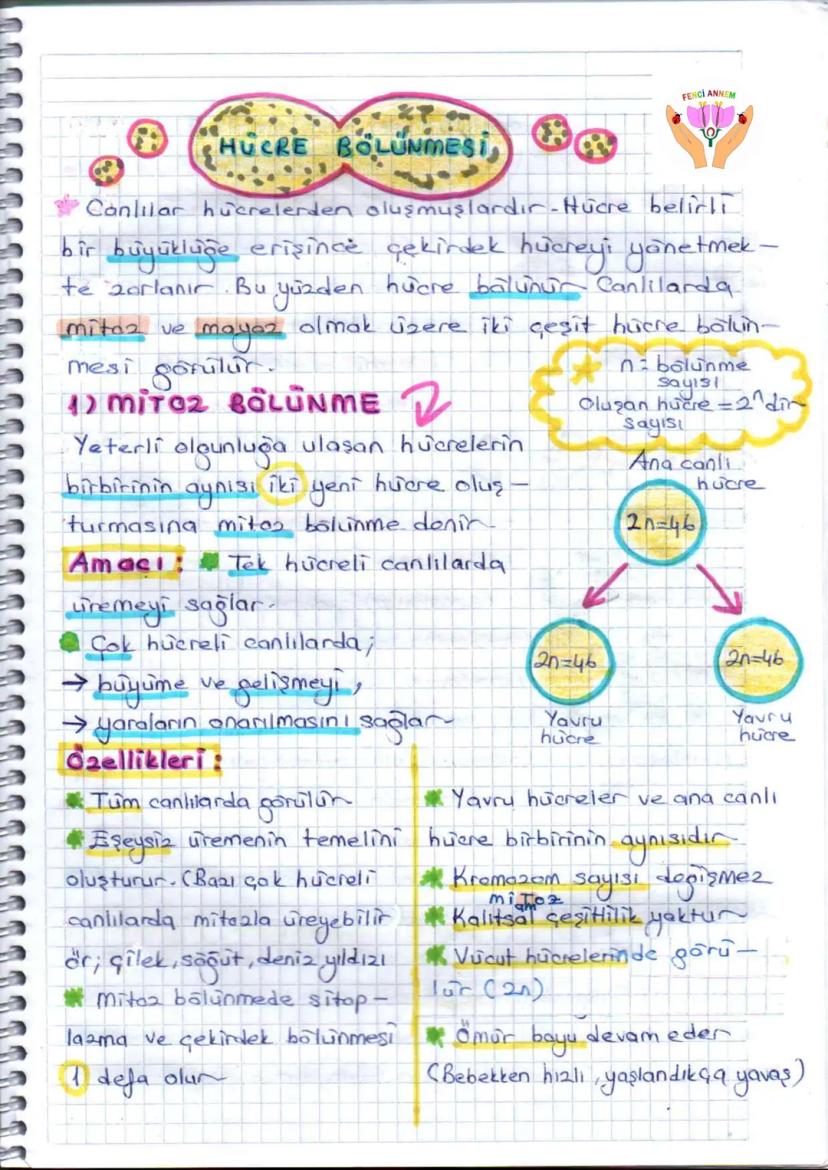 FENCİ ANNEM
HÜCRE BÖLÜNMESİ
Canlılar hücrelerden oluşmuşlardır. Hücre belirli
bir büyüklüğe erişince çekirdek hücreyi yönetmek-
te zorlanır. Bu yüzden hücre bölünür Canlılarda
mitoz ve mayoz olmak üzere iki çeşit hücre bölün-
mesi görülür.
n = bölünme
sayısı
Oluşan hücre = 2ⁿ dir
sayısı
1) MİTOZ BÖLÜNME
Yeterli olgunluğa ulaşan hücrelerin
birbirinin aynısı iki yeni hücre oluş-
turmasına mitoz bölünme denir.
Ana canlı
hücre
2n=46
2n=46
2n=46
Yavru
hücre
Yavru
hücre
Amacı: Tek hücreli canlılarda
üremeyi sağlar.
Çok hücreli canlılarda;
→ büyüme ve gelişmeyi,
→ yaraların onarılmasını sağlar
Özellikleri:
Tüm canlılarda görülür
Eşeysiz üremenin temelini
oluşturur. (Bazı çok hücreli
canlılarda mitozla üreyebilir
ör; çilek, söğüt, deniz yıldızı
Mitoz bölünmede sitop-
lazma ve çekirdek bölünmesi
1 defa olur
Yavru hücreler ve ana canlı
hücre birbirinin aynısıdır
Kromozom sayısı değişmez
mitoz
Kalıtsal çeşitlilik yoktur
Vücut hücrelerinde görü-
lür (2n)
Ömür boyu devam eder
(Bebekken hızlı, yaşlandıkça yavaş)